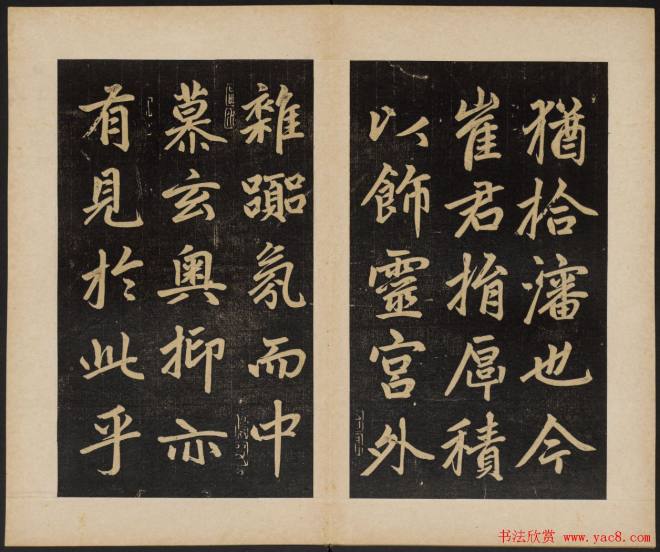 猶拾瀋也今
崔君捐厚積
以飾靈宫外
雜嚻氛而中
慕玄奧抑亦
有見於此乎
书法欣赏 www.yac8.com